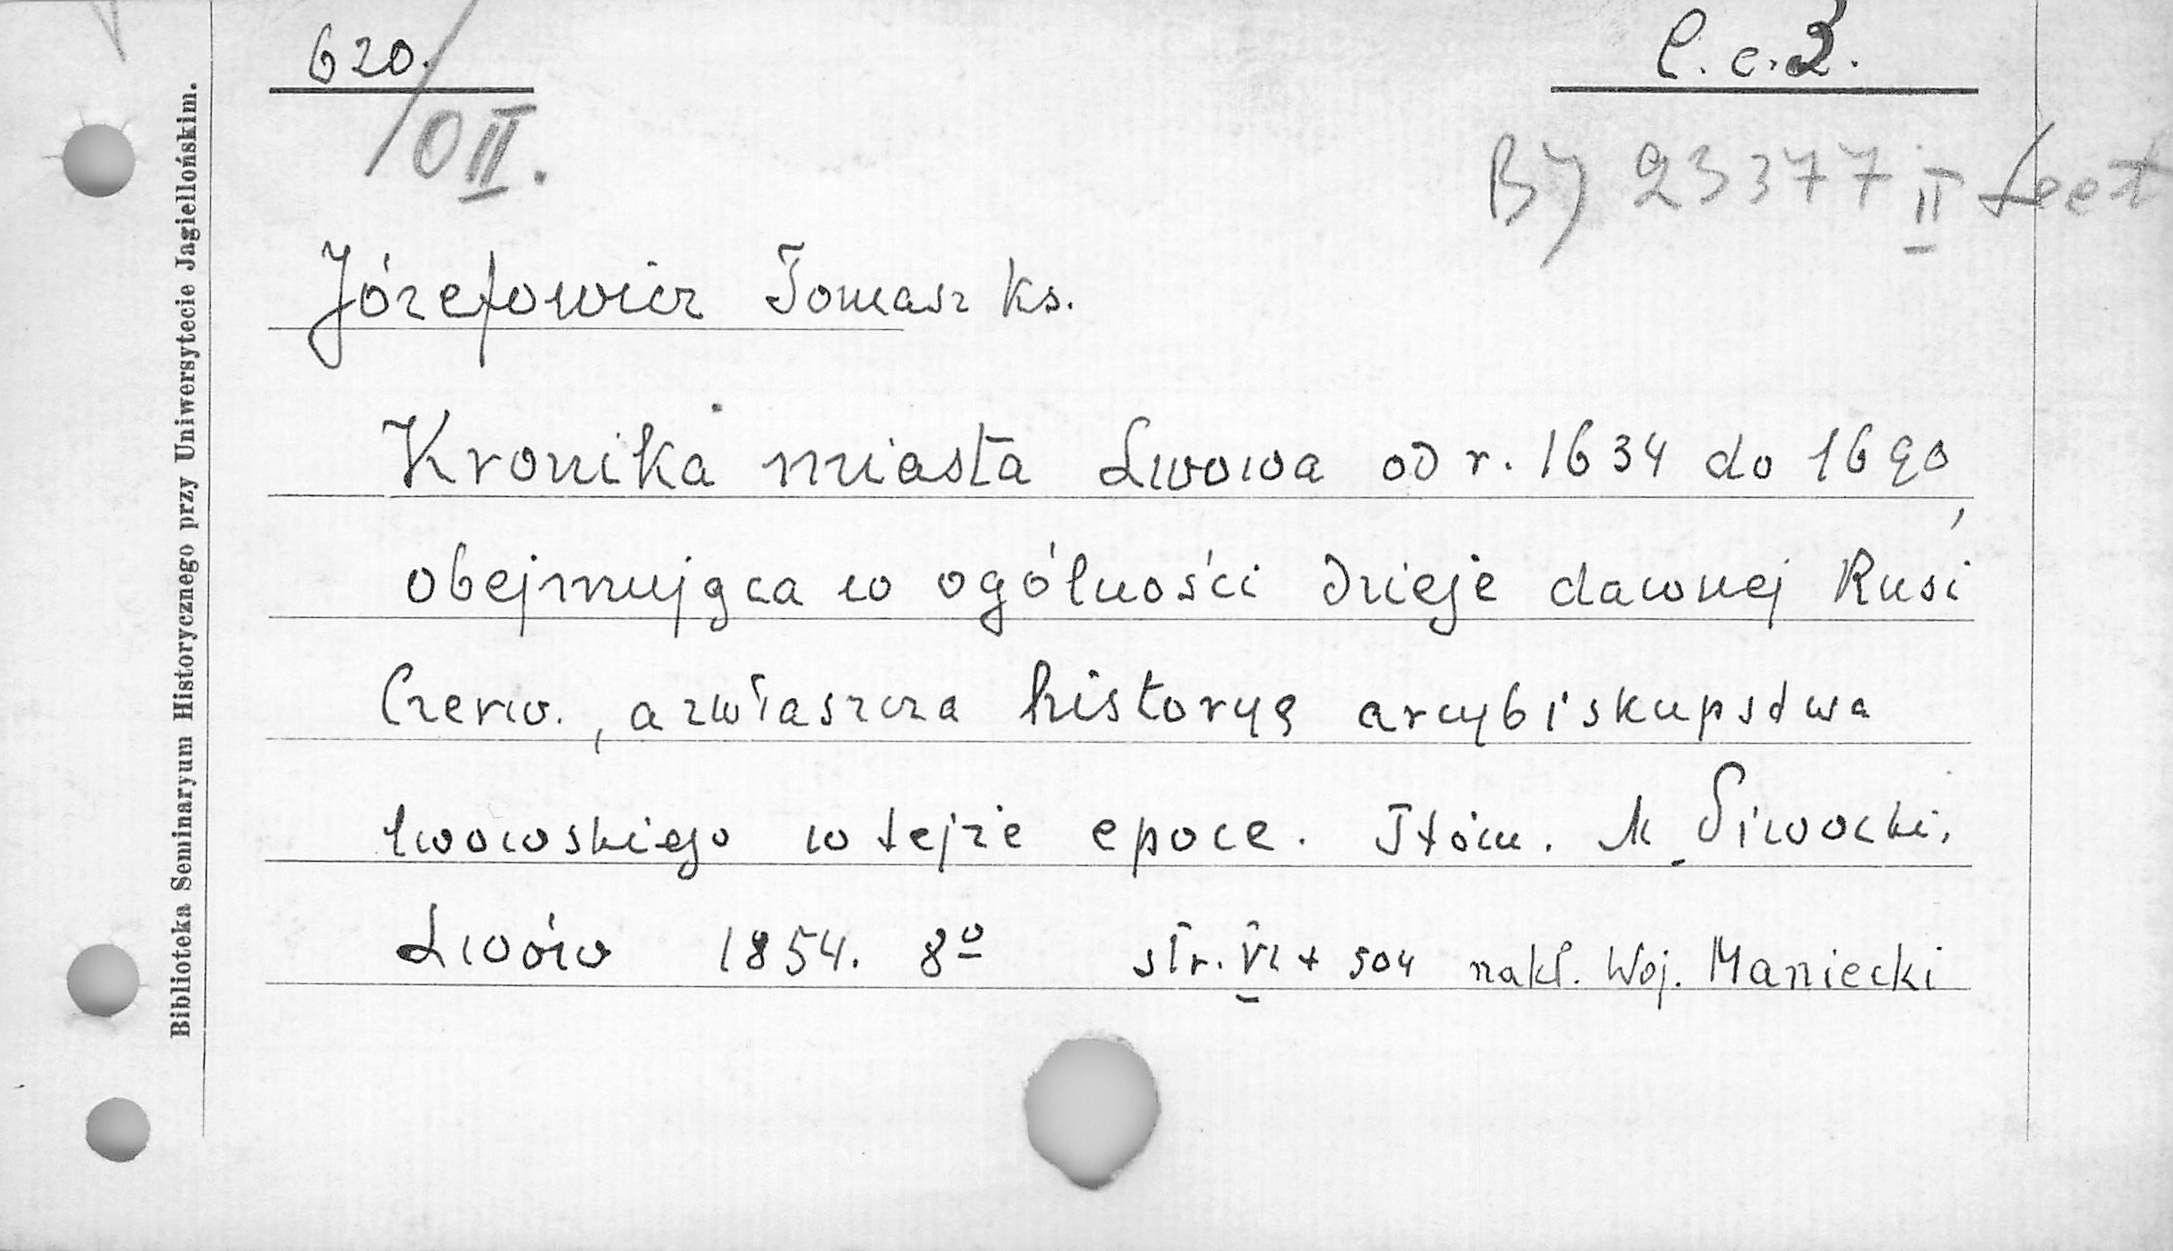 620. C. c. 3.
/OII. BJ 23377 II
Józefowicz Tomasz Ks.
Kronika miasta Lwowa od r. 1634 do 1690,
obejmująca w ogólności dzieje dawnej Rusi
Czerw., a zwłaszcza historyą arcybiskupstwa
lwowskiego w tejże epoce. Tłóm. M. Piwocki.
Lwów 1854. 8º str. VI + 504 nakł. Woj. Maniecki
Biblioteka Seminaryum Historycznego przy Uniwersytecie Jagiellońskim.